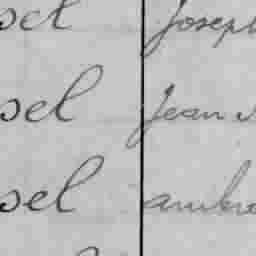 sel Joseph
sel Jean
sel ambro